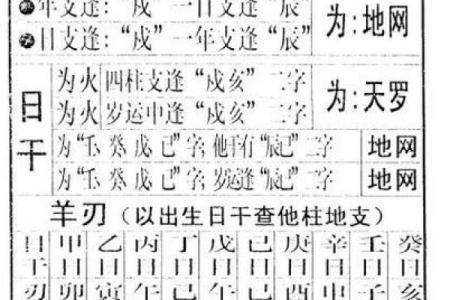 年支逢：“戍” 一日支逢“辰”
日支逢：“戍” 一年支逢“辰”
为：地网
日干
为火 四柱支逢“戍亥”二字
为火 岁运中逢“戍亥”二字
为：天罗
为“壬、癸、戊、己”字，他干有“辰巳”二字 地网
为“壬、癸、戊、己”字，岁运逢“辰巳”二字 地网
羊刃（以出生日干查他柱地支）
日干 甲日 乙日 丙日 丁日 戊日 己日 庚日 辛日 壬日 癸日
刃 卯 寅 午 巳 午 巳 酉 申 子 亥